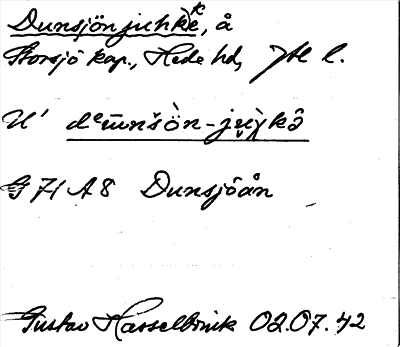 Dunsjönjuhkke, å
Storsjö kap., Hede hd, Jtl l.
U'
G 71 A8 Dunsjöån
Gustav Hasselbrink 02.07.42